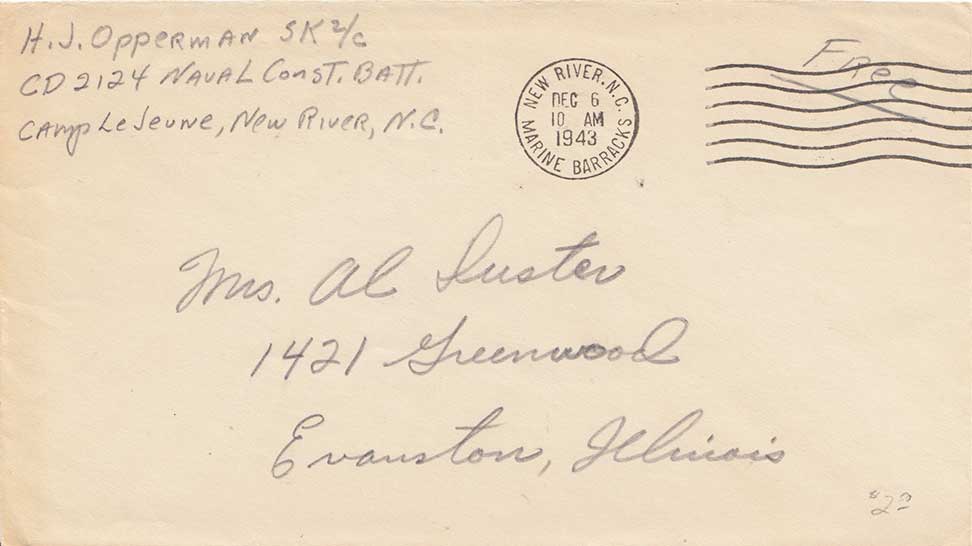 H. J. Opperman SK 2/c
CD 2124 Naval Const. Batt.
Camp LeJeune, New River, N.C.
NEW RIVER, N.C.
DEC 6
10 AM
1943
MARINE BARRACKS
Free
Mrs. Al
1421 Greenwood
Evanston, Illinois